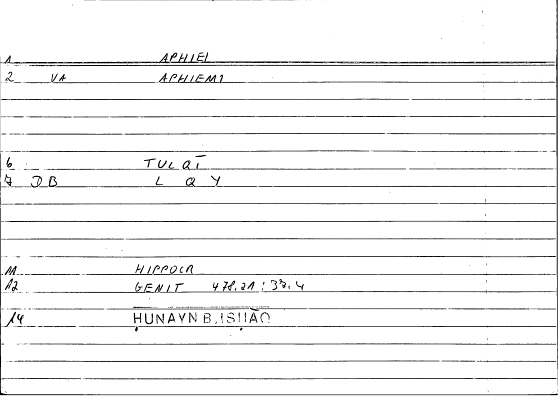 1 APHIEI
2 VA APHIEMI
6 TULQĪ
7 DB L Q Y
11 HIPPOCR
12 GENIT 478,21 : 33,4
14 ḤUNAYN B. ISḤĀQ